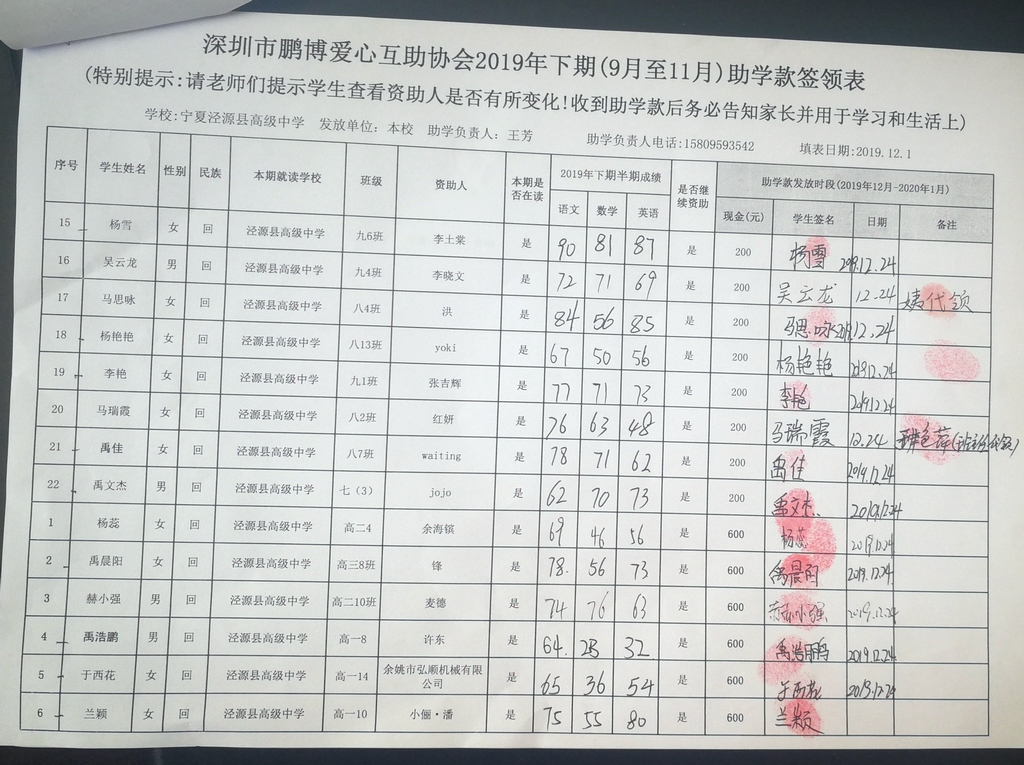 深圳市鹏博爱心互助协会2019年下期(9月至11月)助学款签领表
(特别提示:请老师们提示学生查看资助人是否有所变化!收到助学款后务必告知家长并用于学习和生活上)
学校:宁夏泾源县高级中学 发放单位：本校 助学负责人：王芳 助学负责人电话:15809593542 填表日期:2019.12.1
序号 学生姓名 性别 民族 本期就读学校 班级 资助人 本期是否在读 2019年下期半期成绩 是否继续资助 助学款发放时段(2019年12月-2020年1月)
语文 数学 英语 现金(元) 学生签名 日期 备注
15 杨雪 女 回 泾源县高级中学 九6班 李土棠 是 90 81 87 是 200 杨雪 2019.12.24
16 吴云龙 男 回 泾源县高级中学 九4班 李晓文 是 72 71 69 是 200 吴云龙 12.24 姨代领
17 马思咏 女 回 泾源县高级中学 八4班 洪 是 84 56 85 是 200 马思咏 2019.12.24
18 杨艳艳 女 回 泾源县高级中学 八13班 yoki 是 67 50 56 是 200 杨艳艳 2019.12.24
19 李艳 女 回 泾源县高级中学 九1班 张吉辉 是 77 71 73 是 200 李艳 2019.12.24
20 马瑞霞 女 回 泾源县高级中学 八2班 红妍 是 76 63 48 是 200 马瑞霞 12.24
21 禹佳 女 回 泾源县高级中学 八7班 waiting 是 78 71 62 是 200 禹佳 2019.12.24
22 禹文杰 男 回 泾源县高级中学 七（3） jojo 是 62 70 73 是 200 禹文杰 2019.12.24
1 杨蕊 女 回 泾源县高级中学 高二4 余海镔 是 69 46 56 是 600 杨蕊 2019.12.24
2 禹晨阳 女 回 泾源县高级中学 高三8班 锋 是 78. 56 73 是 600 禹晨阳 2019.12.24
3 赫小强 男 回 泾源县高级中学 高二10班 麦德 是 74 76 63 是 600 赫小强 2019.12.24
4 禹浩鹏 男 回 泾源县高级中学 高一8 许东 是 64. 23 32 是 600 禹浩鹏 2019.12.24
5 于西花 女 回 泾源县高级中学 高一14 余姚市弘顺机械有限公司 是 65 36 54 是 600 于西花 2019.12.24
6 兰颖 女 回 泾源县高级中学 高一10 小俪·潘 是 75 55 80 是 600 兰颖